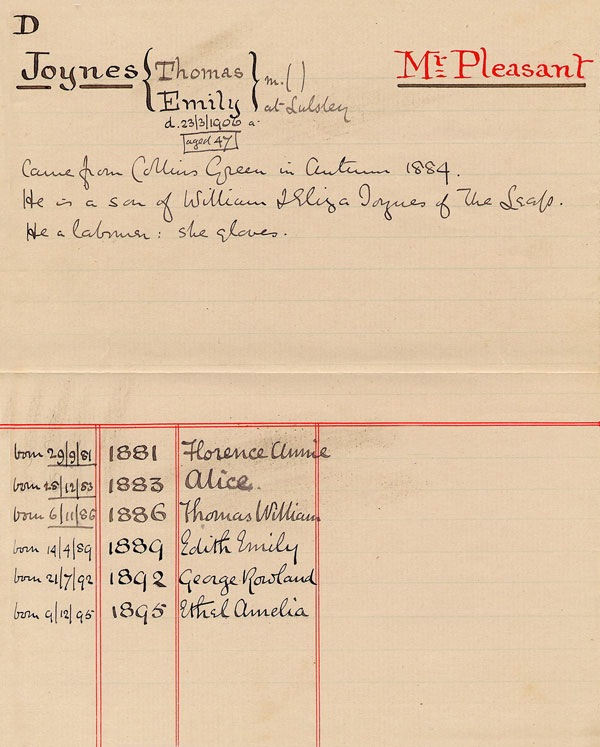 D
Joynes { Thomas Emily } m. ( ) at Lulsley
Mt. Pleasant
d. 23/3/1906 a.
aged 47
Came from Collins Green in Autumn 1884.
He is a son of William & Eliza Joynes of The Leap.
He a labourer: she gloves.
born 29/9/81 1881 Florence Annie
born 28/12/83 1883 Alice.
born 6/11/86 1886 Thomas William
born 14/4/89 1889 Edith Emily
born 21/7/92 1892 George Rowland
born 9/12/95 1895 Ethel Amelia